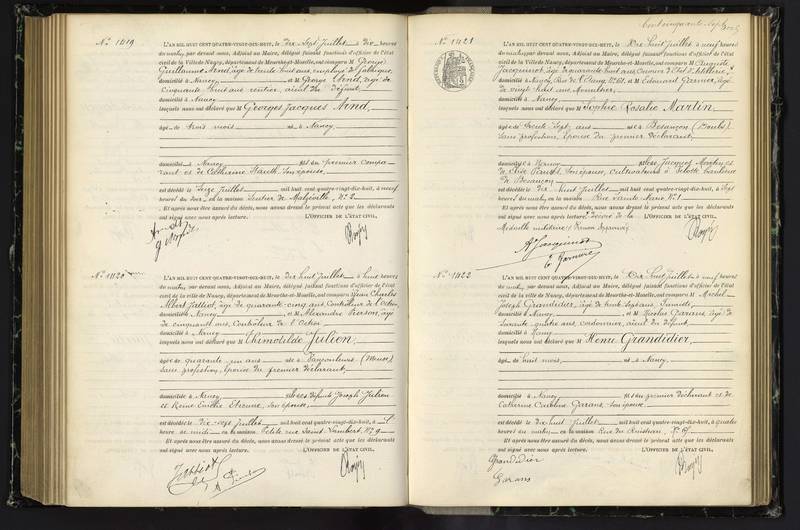 N.° 1419
L'AN MIL HUIT CENT QUATRE-VINGT-DIX-HUIT, le dix sept Juillet à dix heures
du matin, par devant nous, Adjoint au Maire, délégué faisant fonctions d'officier de l'état
civil de la Ville de Nancy, département de Meurthe-et-Moselle, ont comparu M Georges
Guillaume Arnd, âgé de trente huit ans, employé de fabrique,
domicilié à Nancy et M George Arnd, âgé de
cinquante huit ans rentier, aïeul du défunt
domicilié à Nancy
lesquels nous ont déclaré que M Georges Jacques Arnd,
âgé de trois mois né à Nancy
domicilié à Nancy fils du premier compa-
rant et de Catherine son épouse,
est décédé le seize Juillet mil huit cent quatre-vingt-dix-huit, à neuf
heures du soir en sa maison Sentier de Malzéville, N° 2
Et après nous être assuré du décès, nous avons dressé le présent acte que les déclarants
ont signé avec nous après lecture. L'OFFICIER DE L'ÉTAT CIVIL,
Arnd
g Arnd
N.° 1420
L'AN MIL HUIT CENT QUATRE-VINGT-DIX-HUIT, le dix huit Juillet à huit heures
du matin, par devant nous, Adjoint au Maire, délégué faisant fonctions d'officier de l'état
civil de la ville de Nancy, département de Meurthe-et-Moselle, ont comparu M Jean Charles
Albert âgé de quarante cinq ans, Contrôleur de l'Octroi
domicilié à Nancy et M Alexandre Pierson, âgé
de cinquante ans, Contrôleur de l'Octroi
domicilié à Nancy
lesquels nous ont déclaré que M Thimotilde Julien,
âgée de quarante un ans née à Vaucouleurs (Meuse)
sans profession, épouse du premier déclarant,
domiciliée à Nancy fille des défunts Joseph Julien
et Reine Etienne, son épouse,
est décédée le dix-sept Juillet mil huit cent quatre-vingt-dix-huit, à
heure de midi en sa maison Petite rue Saint Lambert, N° 9
Et après nous être assuré du décès, nous avons dressé le présent acte que les déclarants
ont signé avec nous après lecture. L'OFFICIER DE L'ÉTAT CIVIL,
Cent cinquante-sept
N.° 1421
L'AN MIL HUIT CENT QUATRE-VINGT-DIX-HUIT, le Dix huit Juillet à neuf heures
du matin par devant nous, Adjoint au Maire, délégué faisant fonctions d'officier de l'état
civil de la Ville de Nancy, département de Meurthe-et-Moselle, ont comparu M Auguste
Jacqueminot, âgé de quarante huit ans
domicilié à Nancy, Rue de et M Edouard Garnier, âgé
de vingt huit ans
domicilié à Nancy
lesquels nous ont déclaré que M Sophie Rosalie Martin
âgée de trente sept ans née à Besançon (Doubs)
sans profession, épouse du premier déclarant
domiciliée à Nancy fille de Jacques Martin et
de son épouse, cultivateurs à banlieue
de Besançon
est décédée le dix huit Juillet mil huit cent quatre-vingt-dix-huit, à sept
heures du matin en sa maison Rue Sainte Marie N° 1
Et après nous être assuré du décès, nous avons dressé le présent acte que les déclarants
ont signé avec nous après lecture. décoré de la L'OFFICIER DE L'ÉTAT CIVIL,
Médaille militaire
A Jacqueminot
E Garnier
N.° 1422
L'AN MIL HUIT CENT QUATRE-VINGT-DIX-HUIT, le Dix huit Juillet à neuf heures
du matin, par devant nous, Adjoint au Maire, délégué faisant fonctions d'officier de l'état
civil de la ville de Nancy, département de Meurthe-et-Moselle, ont comparu M Michel
Joseph Grandidier, âgé de trente sept ans,
domicilié à Nancy et M Nicolas Garans, âgé de
soixante quatre ans, cordonnier, aïeul du défunt,
domicilié à Nancy
lesquels nous ont déclaré que M Henri Grandidier,
âgé de huit mois, né à Nancy
domicilié à Nancy fils du premier déclarant et de
Catherine Caroline Garans, son épouse
est décédé le dix huit Juillet mil huit cent quatre-vingt-dix-huit, à quatre
heures du matin en sa maison Rue du Ruisseau,
Et après nous être assuré du décès, nous avons dressé le présent acte que les déclarants
ont signé avec nous après lecture. L'OFFICIER DE L'ÉTAT CIVIL,
Grandidier
Garans